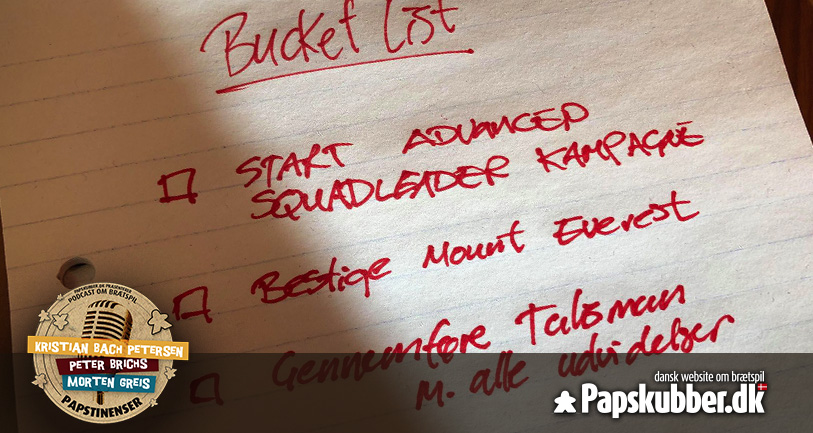 Bucket List
START ADVANCED
SQUADLEADER KAMPAGNE
Bestige Mount Everest
Gennemføre Talisman
m. alle udvidelser
PAPSKUBBER.DK PRÆSENTERER
PODCAST OM BRÆTSPIL
KRISTIAN BACH PETERSEN
PETER BRICHS
MORTEN GREIS
PAPSTINENSER
dansk website om brætspil
Papskubber.dk